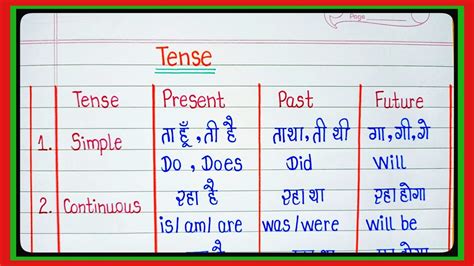 Page
Tense
Tense Present Past Future
1. Simple ता हूँ, ती है ता था, ती थी गा, गी, गे
Do, Does Did Will
2. Continuous रहा है रहा था रहा होगा
is/am/are was/were will be